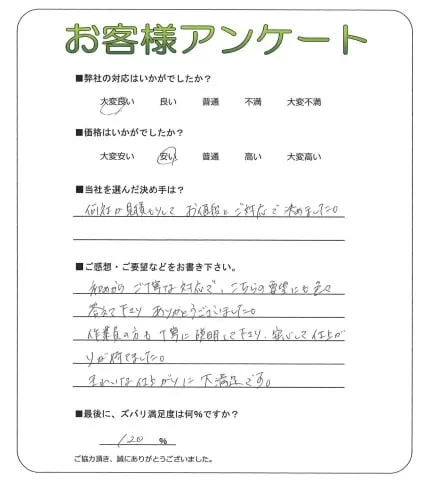 お客様アンケート
■弊社の対応はいかがでしたか？
大変良い 良い 普通 不満 大変不満
■価格はいかがでしたか？
大変安い 安い 普通 高い 大変高い
■当社を選んだ決め手は？
何社か見積もりして お値段とご対応で決めました。
■ご感想・ご要望などをお書き下さい。
初めから ご丁寧な対応で、こちらの要望にも色々
答えて下さり ありがとうございました。
作業員の方も丁寧に説明して下さり、安心して仕上が
りが待てました。
きれいな仕上がりに大満足です。
■最後に、ズバリ満足度は何%ですか？
120 %
ご協力頂き、誠にありがとうございました。